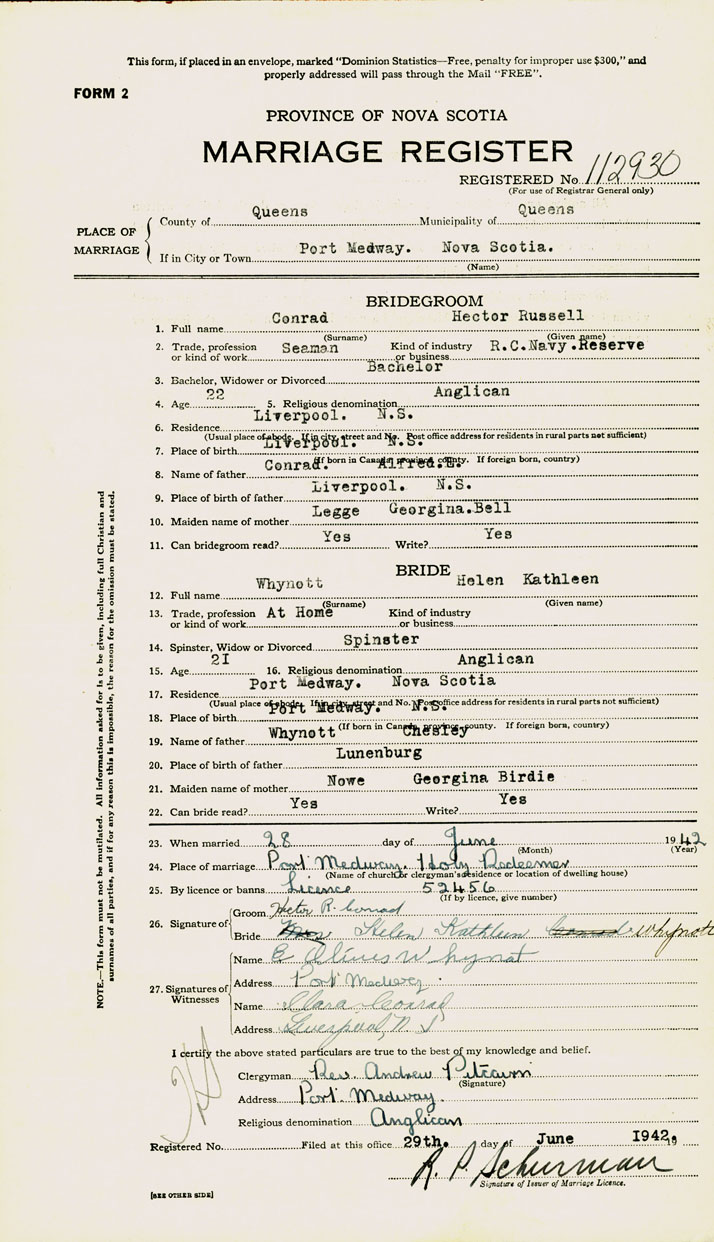 This form, if placed in an envelope, marked "Dominion Statistics—Free, penalty for improper use $300," and
properly addressed will pass through the Mail "FREE".
FORM 2
PROVINCE OF NOVA SCOTIA
MARRIAGE REGISTER
REGISTERED No. 112930
(For use of Registrar General only)
PLACE OF MARRIAGE
County of Queens Municipality of Queens
If in City or Town Port Medway. Nova Scotia.
(Name)
BRIDEGROOM
1. Full name Conrad Hector Russell
(Surname) (Given name)
2. Trade, profession or kind of work Seaman Kind of industry or business R.C.Navy.Reserve
3. Bachelor, Widower or Divorced Bachelor
4. Age 22 5. Religious denomination Anglican
6. Residence Liverpool. N.S.
(Usual place of abode. If in city, street and No. Post office address for residents in rural parts not sufficient)
7. Place of birth Liverpool. N.S.
(If born in Canada, province, county. If foreign born, country)
8. Name of father Conrad. Alfred.E.
9. Place of birth of father Liverpool. N.S.
10. Maiden name of mother Legge Georgina.Bell
11. Can bridegroom read? Yes Write? Yes
BRIDE
12. Full name Whynott Helen Kathleen
(Surname) (Given name)
13. Trade, profession or kind of work At Home Kind of industry or business
14. Spinster, Widow or Divorced Spinster
15. Age 2I 16. Religious denomination Anglican
17. Residence Port Medway. Nova Scotia
(Usual place of abode. If in city, street and No. Post office address for residents in rural parts not sufficient)
18. Place of birth Port Medway. N.S.
(If born in Canada, province, county. If foreign born, country)
19. Name of father Whynott Chesley
20. Place of birth of father Lunenburg
21. Maiden name of mother Nowe Georgina Birdie
22. Can bride read? Yes Write? Yes
23. When married 28 day of June 1942
(Month) (Year)
24. Place of marriage Port Medway. Holy Redeemer
(Name of church or clergyman's residence or location of dwelling house)
25. By licence or banns Licence 52456
(If by licence, give number)
26. Signature of
Groom Hector R. Conrad
Bride Helen Kathleen Conrad Whynott
27. Signatures of Witnesses
Name Olivus Whynot
Address Port Medway
Name Clara Conrad
Address Liverpool, N S
I certify the above stated particulars are true to the best of my knowledge and belief.
Clergyman Rev. Andrew Pitcairn
(Signature)
Address Port Medway.
Religious denomination Anglican
Registered No. Filed at this office 29th. day of June I942. 19
R. P. Schurman
Signature of Issuer of Marriage Licence.
[SEE OTHER SIDE]
NOTE.—This form must not be mutilated. All information asked for is to be given, including full Christian and
surnames of all parties, and if for any reason this is impossible, the reason for the omission must be stated.